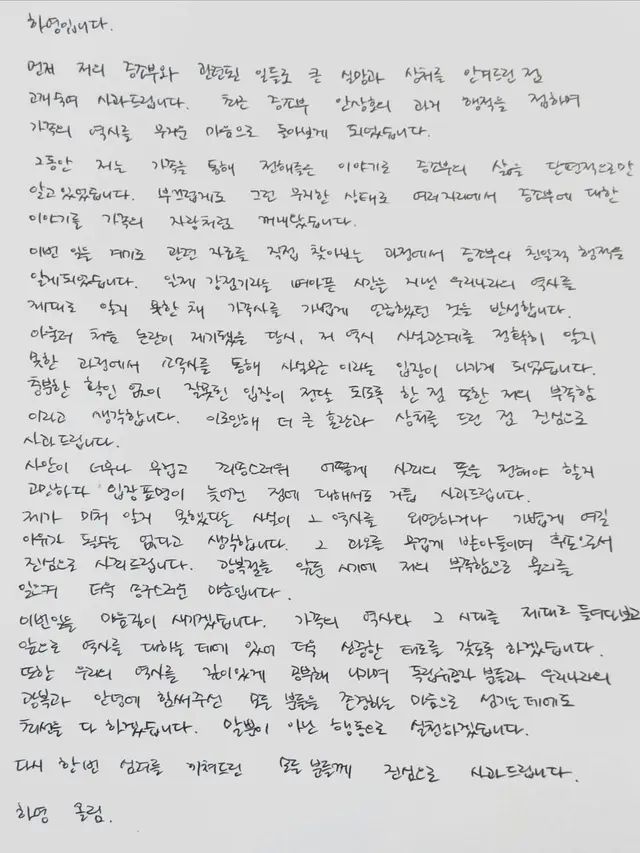 하영입니다.
먼저 저의 증조부와 관련된 일들로 큰 실망과 상처를 안겨드린 점
고개숙여 사과드립니다. 최근 증조부 안상호의 과거 행적을 접하며
가족의 역사를 무거운 마음으로 돌아보게 되었습니다.
그동안 저는 가족을 통해 전해들은 이야기로 증조부의 삶을 단편적으로만
알고 있었습니다. 부끄럽게도 그런 무지한 상태로 여러자리에서 증조부에 대한
이야기를 가족의 자랑처럼 꺼내왔습니다.
이번 일을 계기로 관련 자료를 직접 찾아보는 과정에서 증조부의 친일적 행적을
알게되었습니다. 일제 강점기라는 뼈아픈 시간을 지닌 우리나라의 역사를
제대로 알지 못한 채 가족사를 가볍게 언급했던 것을 반성합니다.
아울러 처음 논란이 제기됐을 당시, 저 역시 사실관계를 정확히 알지
못한 과정에서 소속사를 통해 사실무근이라는 입장이 나가게 되었습니다.
충분한 확인 없이 잘못된 입장이 전달 되도록 한 점 또한 저의 부족함
이라고 생각합니다. 이로인해 더 큰 혼란과 상처를 드린 점 진심으로
사과드립니다.
사안이 너무나 무겁고 죄송스러워 어떻게 사죄의 뜻을 전해야 할지
고민하다 입장표명이 늦어진 점에 대해서도 거듭 사과드립니다.
제가 미처 알지 못했다는 사실이 그 역사를 외면하거나 가볍게 여길
이유가 될수는 없다고 생각합니다. 그 과오를 무겁게 받아들이며 후손으로서
진심으로 사죄드립니다. 광복절을 앞둔 시기에 저의 부족함으로 물의를
일으켜 더욱 송구스러운 마음입니다.
이번일을 마음깊이 새기겠습니다. 가족의 역사와 그 시대를 제대로 들여다보고
앞으로 역사를 대하는 데에 있어 더욱 신중한 태도를 갖도록 하겠습니다.
또한 우리의 역사를 깊이있게 공부해 나가며 독립유공자 분들과 우리나라의
광복과 안녕에 힘써주신 모든 분들을 존경하는 마음으로 섬기는데에도
최선을 다 하겠습니다. 말뿐이 아닌 행동으로 실천하겠습니다.
다시 한번 심려를 끼쳐드린 모든 분들께 진심으로 사과드립니다.
하영 올림.